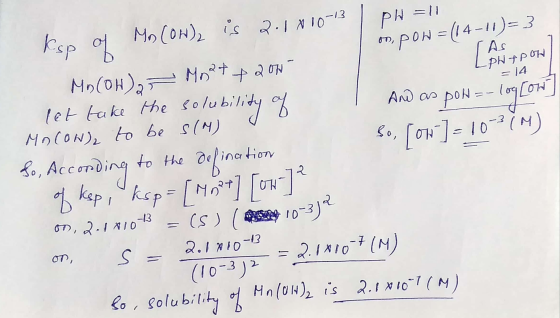 Ksp of Mn(OH)₂ is 2.1×10⁻¹³
Mn(OH)₂ ⇌ Mn²⁺ + 2OH⁻
let take the solubility of
Mn(OH)₂ to be s(M)
So, According to the defination
of ksp, ksp = [Mn²⁺] [OH⁻]²
or, 2.1×10⁻¹³ = (S) (10⁻³)²
or, S = 2.1×10⁻¹³ / (10⁻³)² = 2.1×10⁻⁷ (M)
So, solubility of Mn(OH)₂ is 2.1×10⁻⁷ (M)
pH = 11
or, pOH = (14-11) = 3
[As
pH + pOH
= 14]
And as pOH = - log[OH⁻]
So, [OH⁻] = 10⁻³ (M)